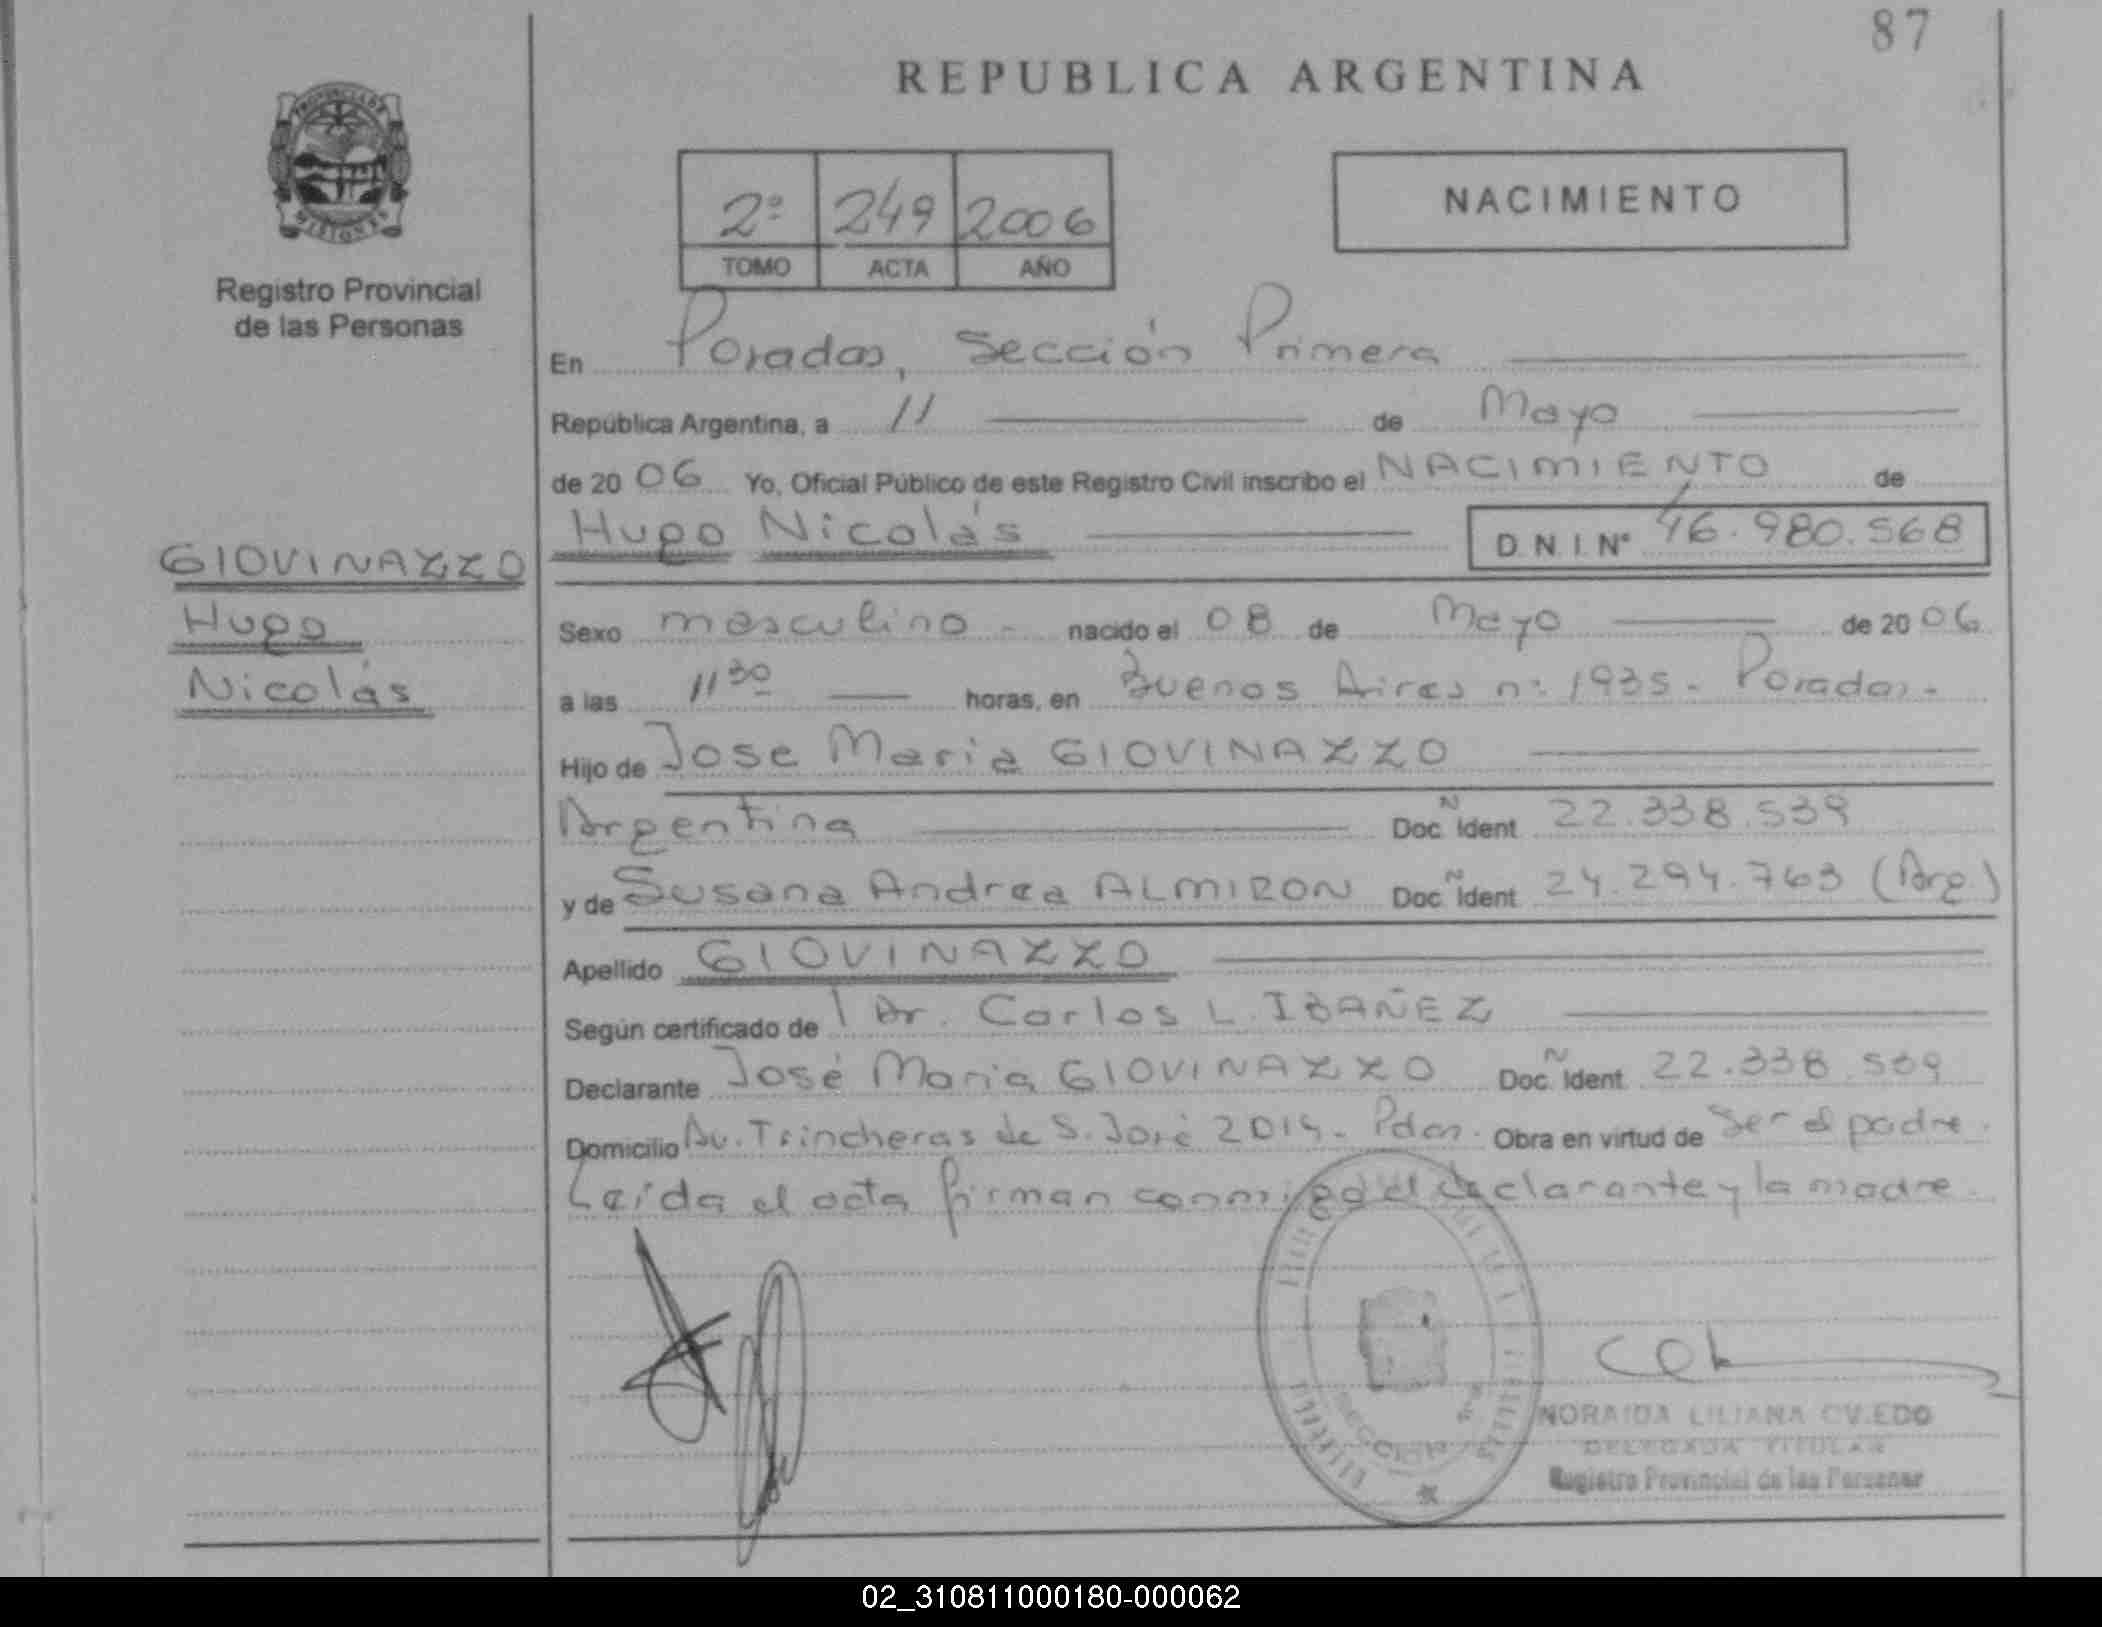 87
REPUBLICA ARGENTINA
PROVINCIA DE
MISIONES
2º 249 2006
TOMO ACTA AÑO
NACIMIENTO
Registro Provincial
de las Personas
En Posadas, Sección Primera
República Argentina, a 11 de Mayo
de 20 06 Yo, Oficial Público de este Registro Civil inscribo el NACIMIENTO de
Hugo Nicolás D.N.I. Nº 46.980.568
GIOVINAZZO
Hugo
Nicolás
Sexo masculino - nacido el 08 de Mayo de 20 06
a las 11 30 horas, en Buenos Aires nº 1935 - Posadas -
Hijo de Jose Maria GIOVINAZZO
Argentina Doc. Ñ Ident. 22.338.539
y de Susana Andrea ALMIRON Doc. Ñ Ident. 24.294.763 (Arg.)
Apellido GIOVINAZZO
Según certificado de Dr. Carlos L. IBAÑEZ
Declarante José Maria GIOVINAZZO Doc. Ñ Ident. 22.338.539
Domicilio Av. Trincheras de S. José - Pdas. Obra en virtud de Ser el padre.
Leída el acta firman conmigo el declarante y la madre.
SECCION
NORAIDA LILIANA OVIEDO
DELEGADA TITULAR
Registro Provincial de las Personas
02_310811000180-000062